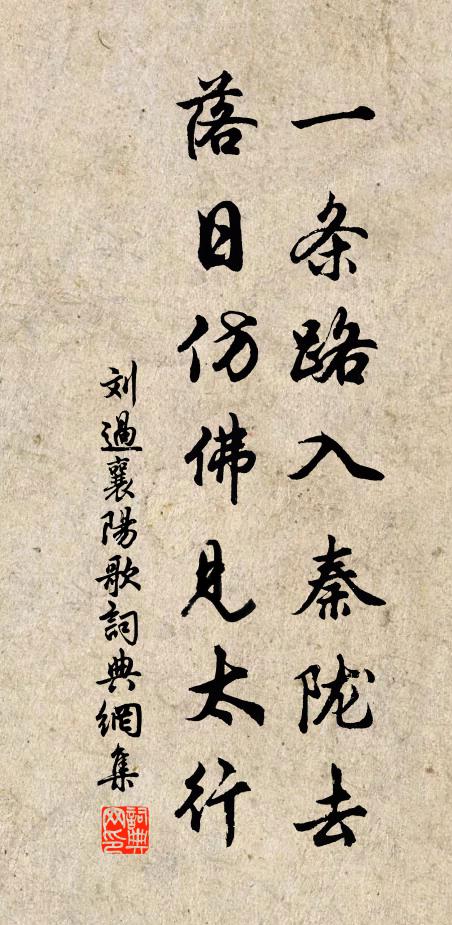 一条路入秦陇去
落日仿佛见太行
刘過襄陽歌詞典網集
詞典网印